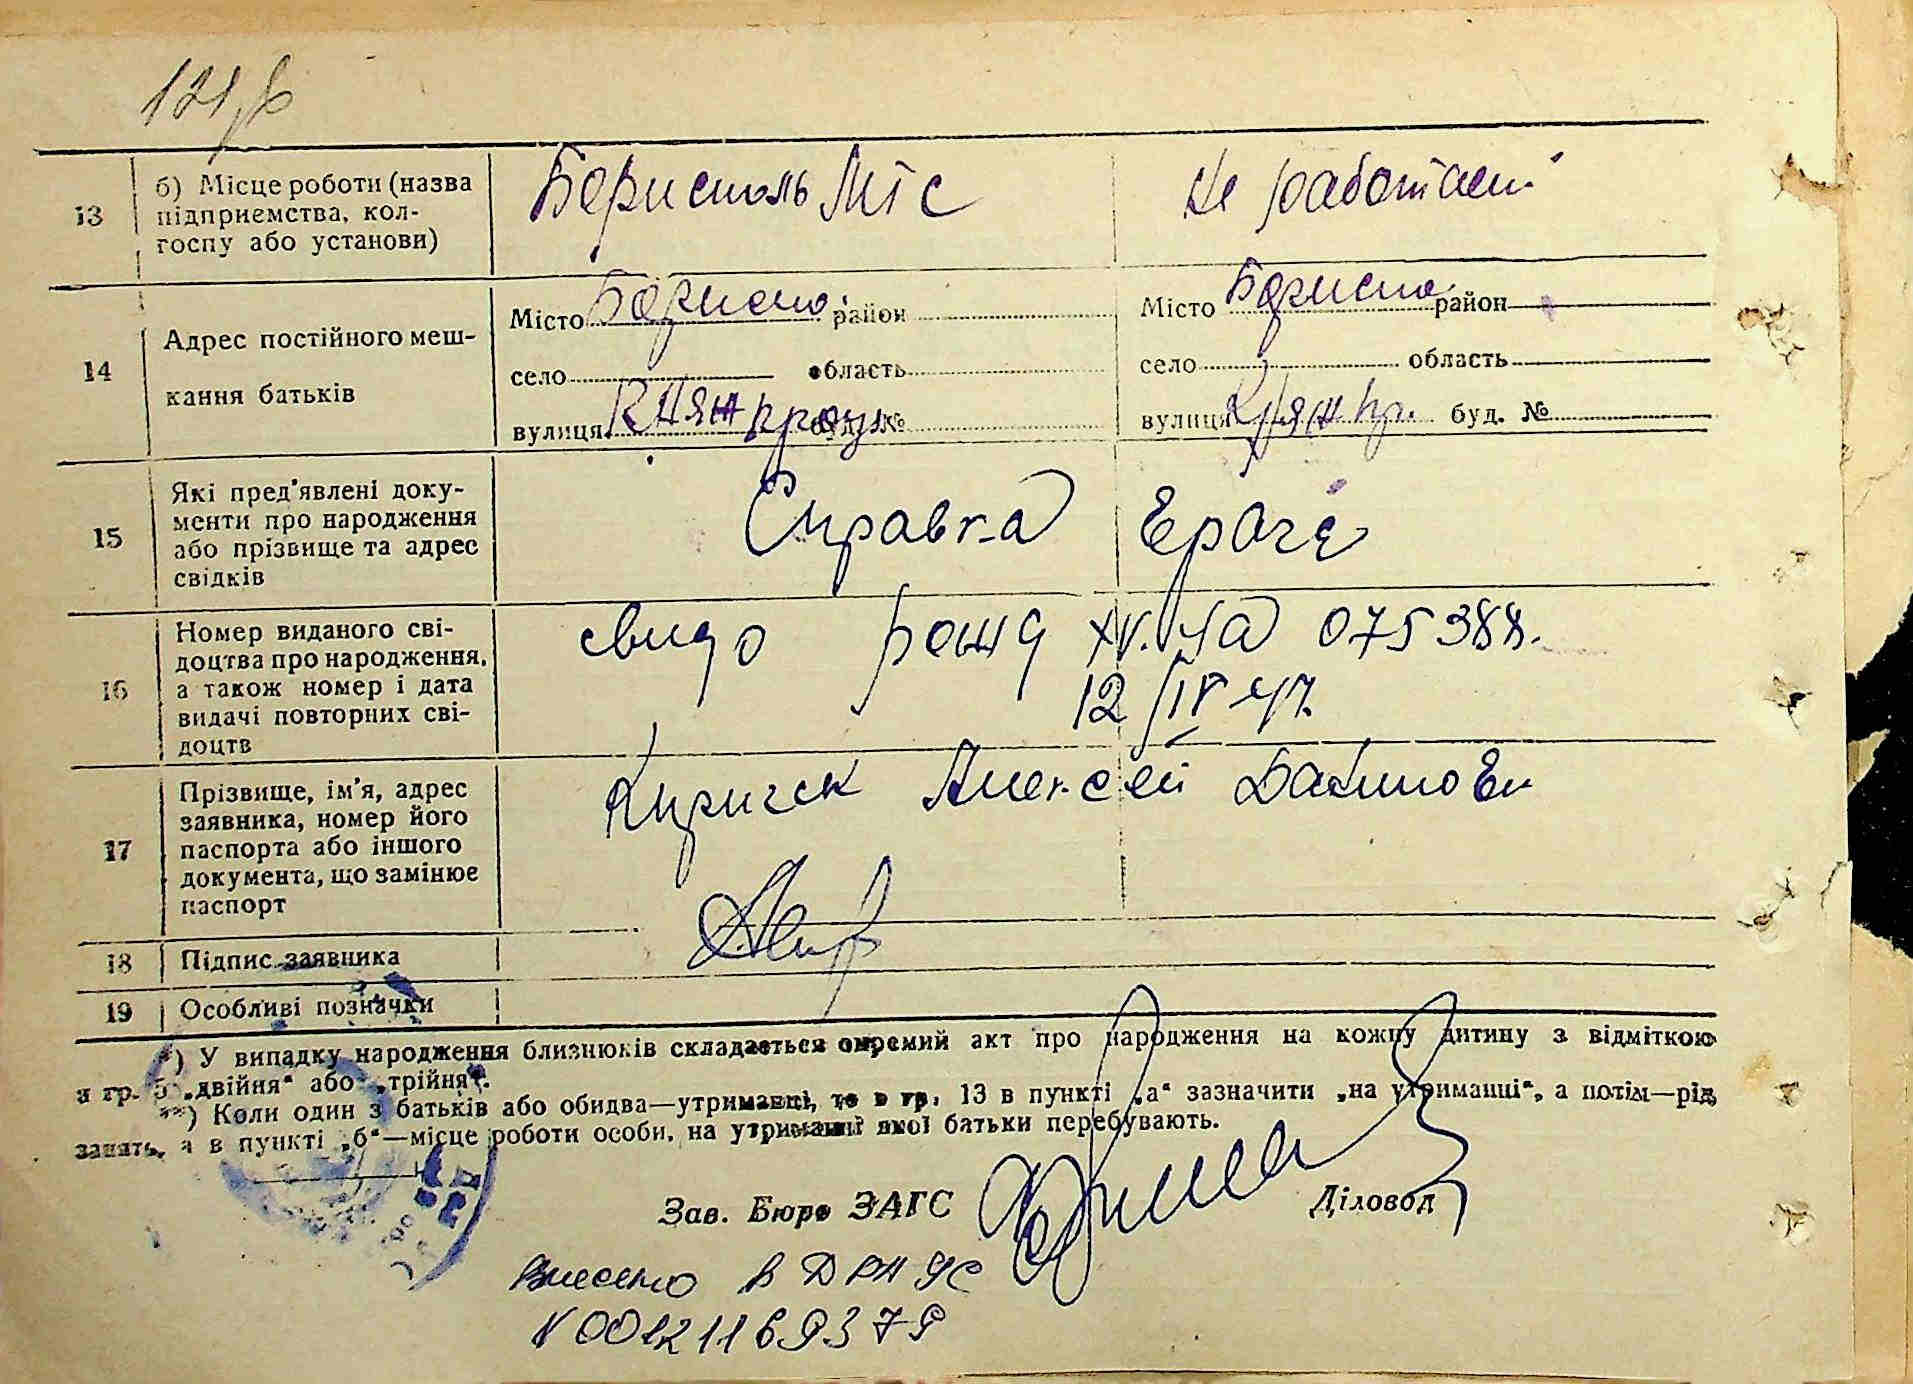 13 б) Місце роботи (назва підприємства, колгоспу або установи) Борисполь МТС Не работает
14 Адрес постійного мешкання батьків
Місто Борисп. район Місто Борисп район
село область село область
вулиця буд. № вулиця буд. №
15 Які пред'явлені документи про народження або прізвище та адрес свідків Справка
16 Номер виданого свідоцтва про народження, а також номер і дата видачі повторних свідоцтв 075388.
12/IV 47.
17 Прізвище, ім'я, адрес заявника, номер його паспорта або іншого документа, що замінює паспорт Алексей
18 Підпис заявника
19 Особливі позначки
*) У випадку народження близнюків складається окремий акт про народження на кожну дитину з відміткою
в гр. 5 „двійня“ або „трійня“.
**) Коли один з батьків або обидва—утриманці, то в гр. 13 в пункті „а“ зазначити „на утриманні“, а потім—рід
занять, а в пункті „б“—місце роботи особи, на утриманні якої батьки перебувають.
Зав. Бюро ЗАГС Діловод
Внесено в ДРАЦС
N 00121169379